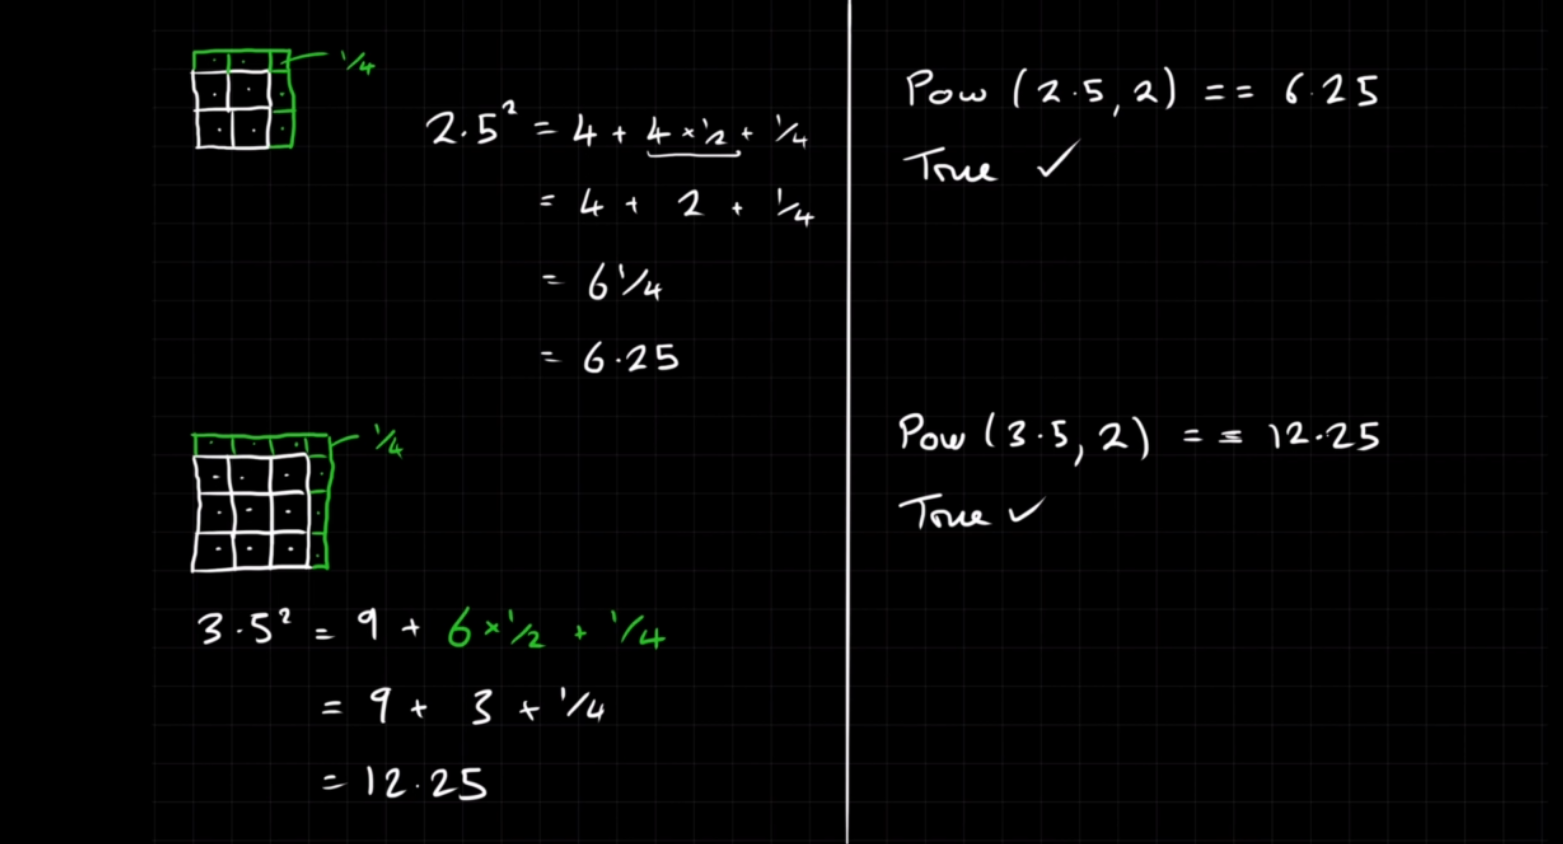 1/4
2.5² = 4 + 4 × 1/2 + 1/4
= 4 + 2 + 1/4
= 6 1/4
= 6.25
1/4
3.5² = 9 + 6 × 1/2 + 1/4
= 9 + 3 + 1/4
= 12.25
Pow (2.5, 2) == 6.25
True ✓
Pow (3.5, 2) == 12.25
True ✓